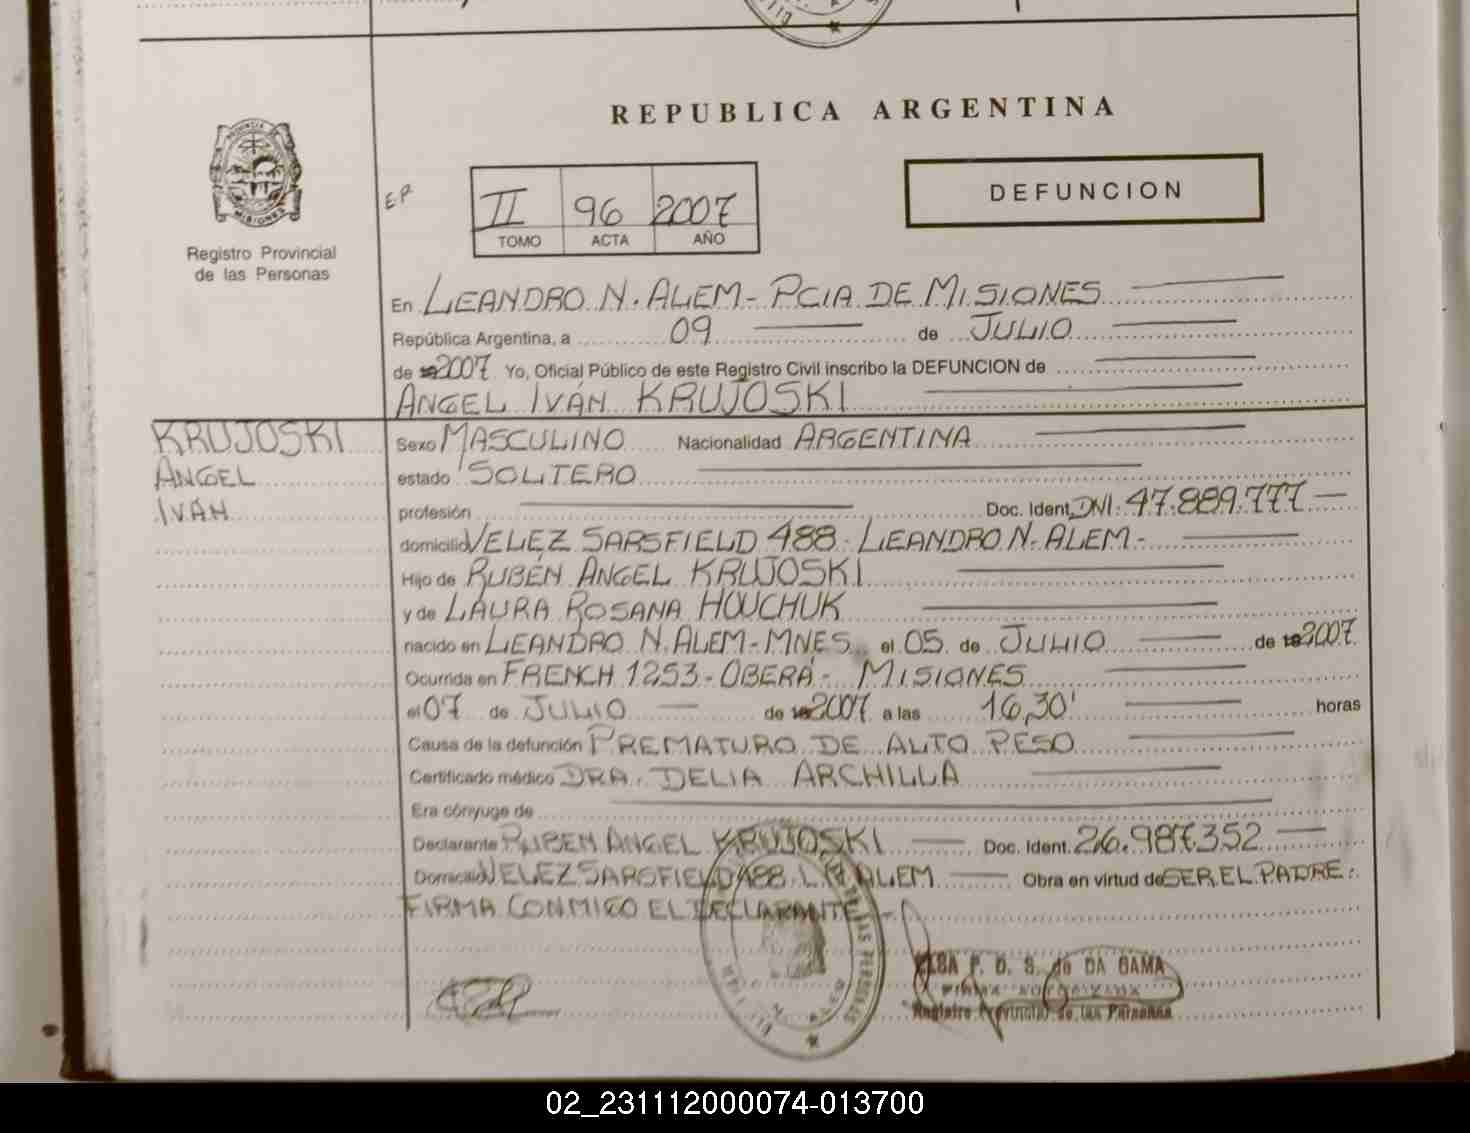 REPUBLICA ARGENTINA
PROVINCIA DE
MISIONES
Registro Provincial
de las Personas
EP
II 96 2007
TOMO ACTA AÑO
DEFUNCION
En LEANDRO N. ALEM - PCIA DE MISIONES
República Argentina, a 09 de JULIO
de 2007 Yo, Oficial Público de este Registro Civil inscribo la DEFUNCION de
ANGEL IVÁN KRUJOSKI
KRUJOSKI
ANGEL
IVÁN
Sexo MASCULINO Nacionalidad ARGENTINA
estado SOLTERO
profesión Doc. Ident. DNI. 47.889.777
domicilio VELEZ SARSFIELD 488 - LEANDRO N. ALEM -
Hijo de RUBÉN ANGEL KRUJOSKI
y de LAURA ROSANA HOUCHUK
nacido en LEANDRO N. ALEM - MNES. el 05 de JULIO de 2007
Ocurrida en FRENCH 1253 - OBERÁ - MISIONES
el 07 de JULIO de 2007 a las 16,30' horas
Causa de la defunción PREMATURO DE ALTO PESO
Certificado médico DRA. DELIA ARCHILLA
Era cónyuge de
Declarante RUBEN ANGEL KRUJOSKI Doc. Ident. 26.987.352
Domicilio VELEZ SARSFIELD 488 L.N. ALEM Obra en virtud de SER EL PADRE.
FIRMA CONMIGO EL DECLARANTE -
ELBA P. D. S. de DA GAMA
FIRMA AUTORIZADA
Registro Provincial de las Personas
02_231112000074-013700